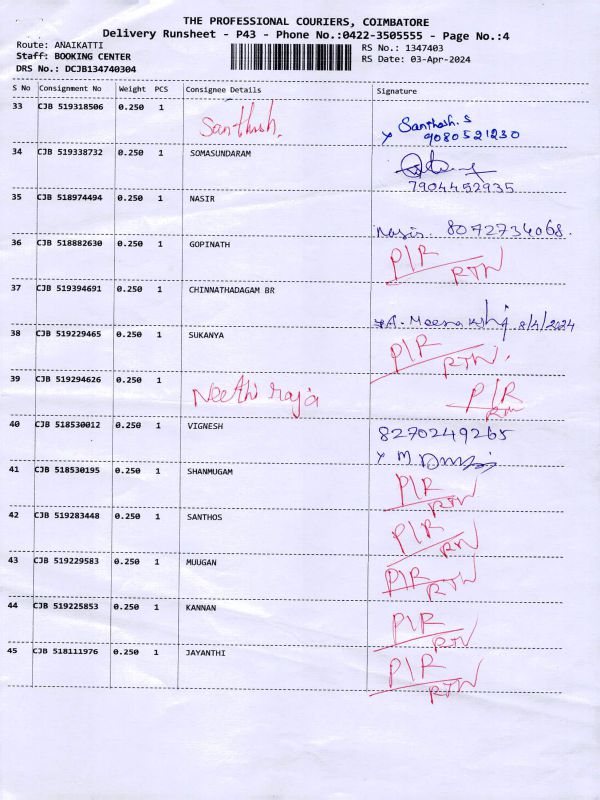 THE PROFESSIONAL COURIERS, COIMBATORE
Delivery Runsheet - P43 - Phone No.:0422-3505555 - Page No.:4
Route: ANAIKATTI
RS No.: 1347403
Staff: BOOKING CENTER
RS Date: 03-Apr-2024
DRS No.: DCJB134740304
S No Consignment No Weight PCS Consignee Details Signature
33 CJB 519318506 0.250 1 Santhosh. Santhosh. S
9080521230
34 CJB 519338732 0.250 1 SOMASUNDARAM
7904452935
35 CJB 518974494 0.250 1 NASIR
Nasir. 8072734068.
36 CJB 518882630 0.250 1 GOPINATH P/R
RTN
37 CJB 519394691 0.250 1 CHINNATHADAGAM BR
A. Meenakshi 8/4/2024
38 CJB 519229465 0.250 1 SUKANYA P/R
RTN.
39 CJB 519294626 0.250 1 Neethi raja P/R
RTN
40 CJB 518530012 0.250 1 VIGNESH 8270249265
x M
41 CJB 518530195 0.250 1 SHANMUGAM P/R
RTN
42 CJB 519283448 0.250 1 SANTHOS P/R
RTN
43 CJB 519229583 0.250 1 MUUGAN P/R
RTN
44 CJB 519225853 0.250 1 KANNAN P/R
RTN
45 CJB 518111976 0.250 1 JAYANTHI P/R
RTN